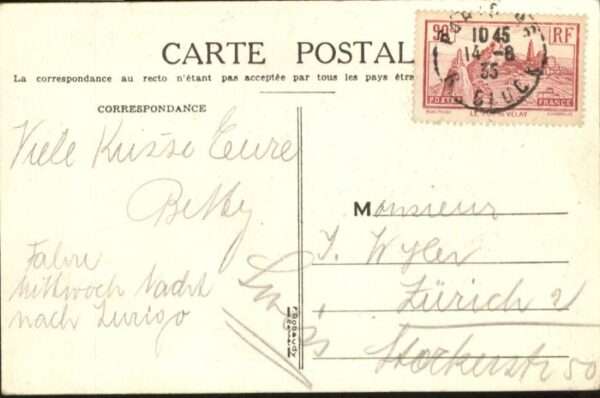 CARTE POSTALE
La correspondance au recto n'étant pas acceptée par tous les pays étra
CORRESPONDANCE
Viele Küsse Eure
Betty
Fahre
Mittwoch Nacht
nach Zurigo
90 RF
10 45
14 - 8
35
R. GLUCK
POSTES FRANCE
LE PUY-EN-VELAY
Monsieur
J. Wyler
Zürich 2
Stockerstr 50